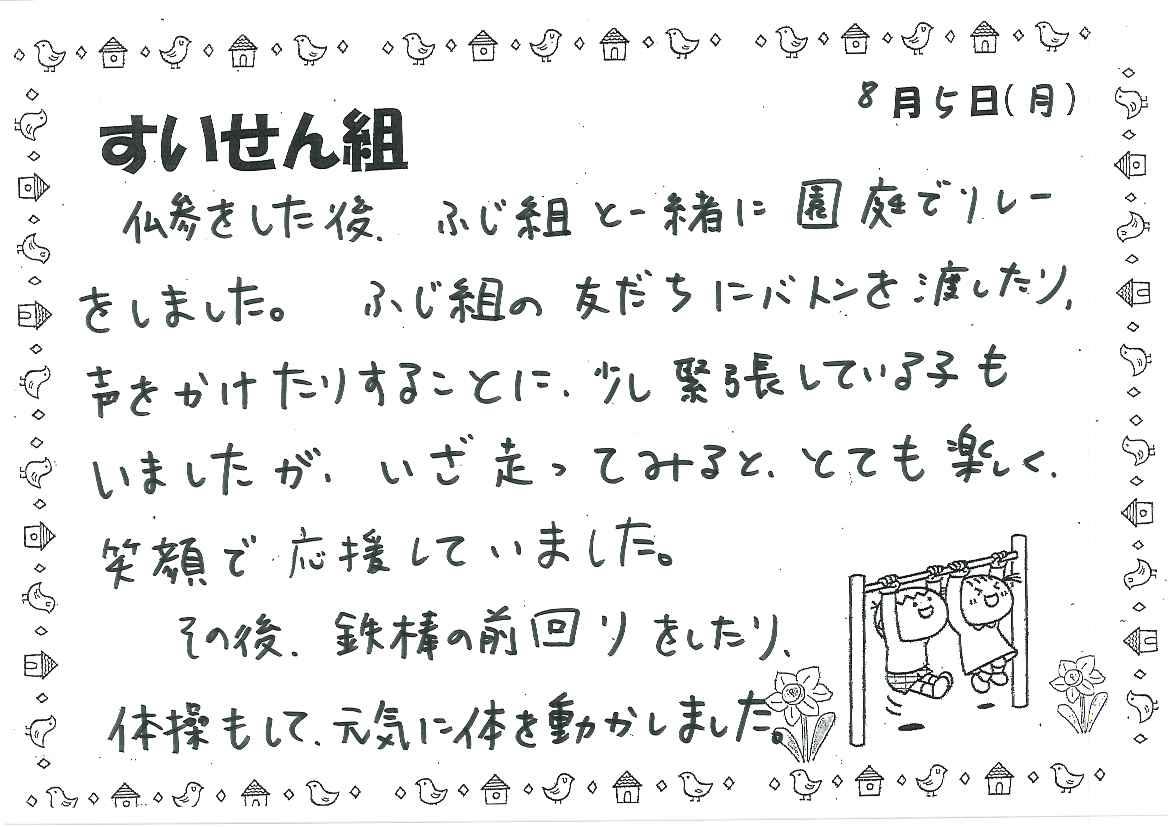 8月5日(月)
すいせん組
仏参をした後、ふじ組と一緒に園庭でリレー
をしました。ふじ組の友だちにバトンを渡したり、
声をかけたりすることに、少し緊張している子も
いましたが、いざ走ってみると、とても楽しく、
笑顔で応援していました。
その後、鉄棒の前回りをしたり、
体操もして、元気に体を動かしました。